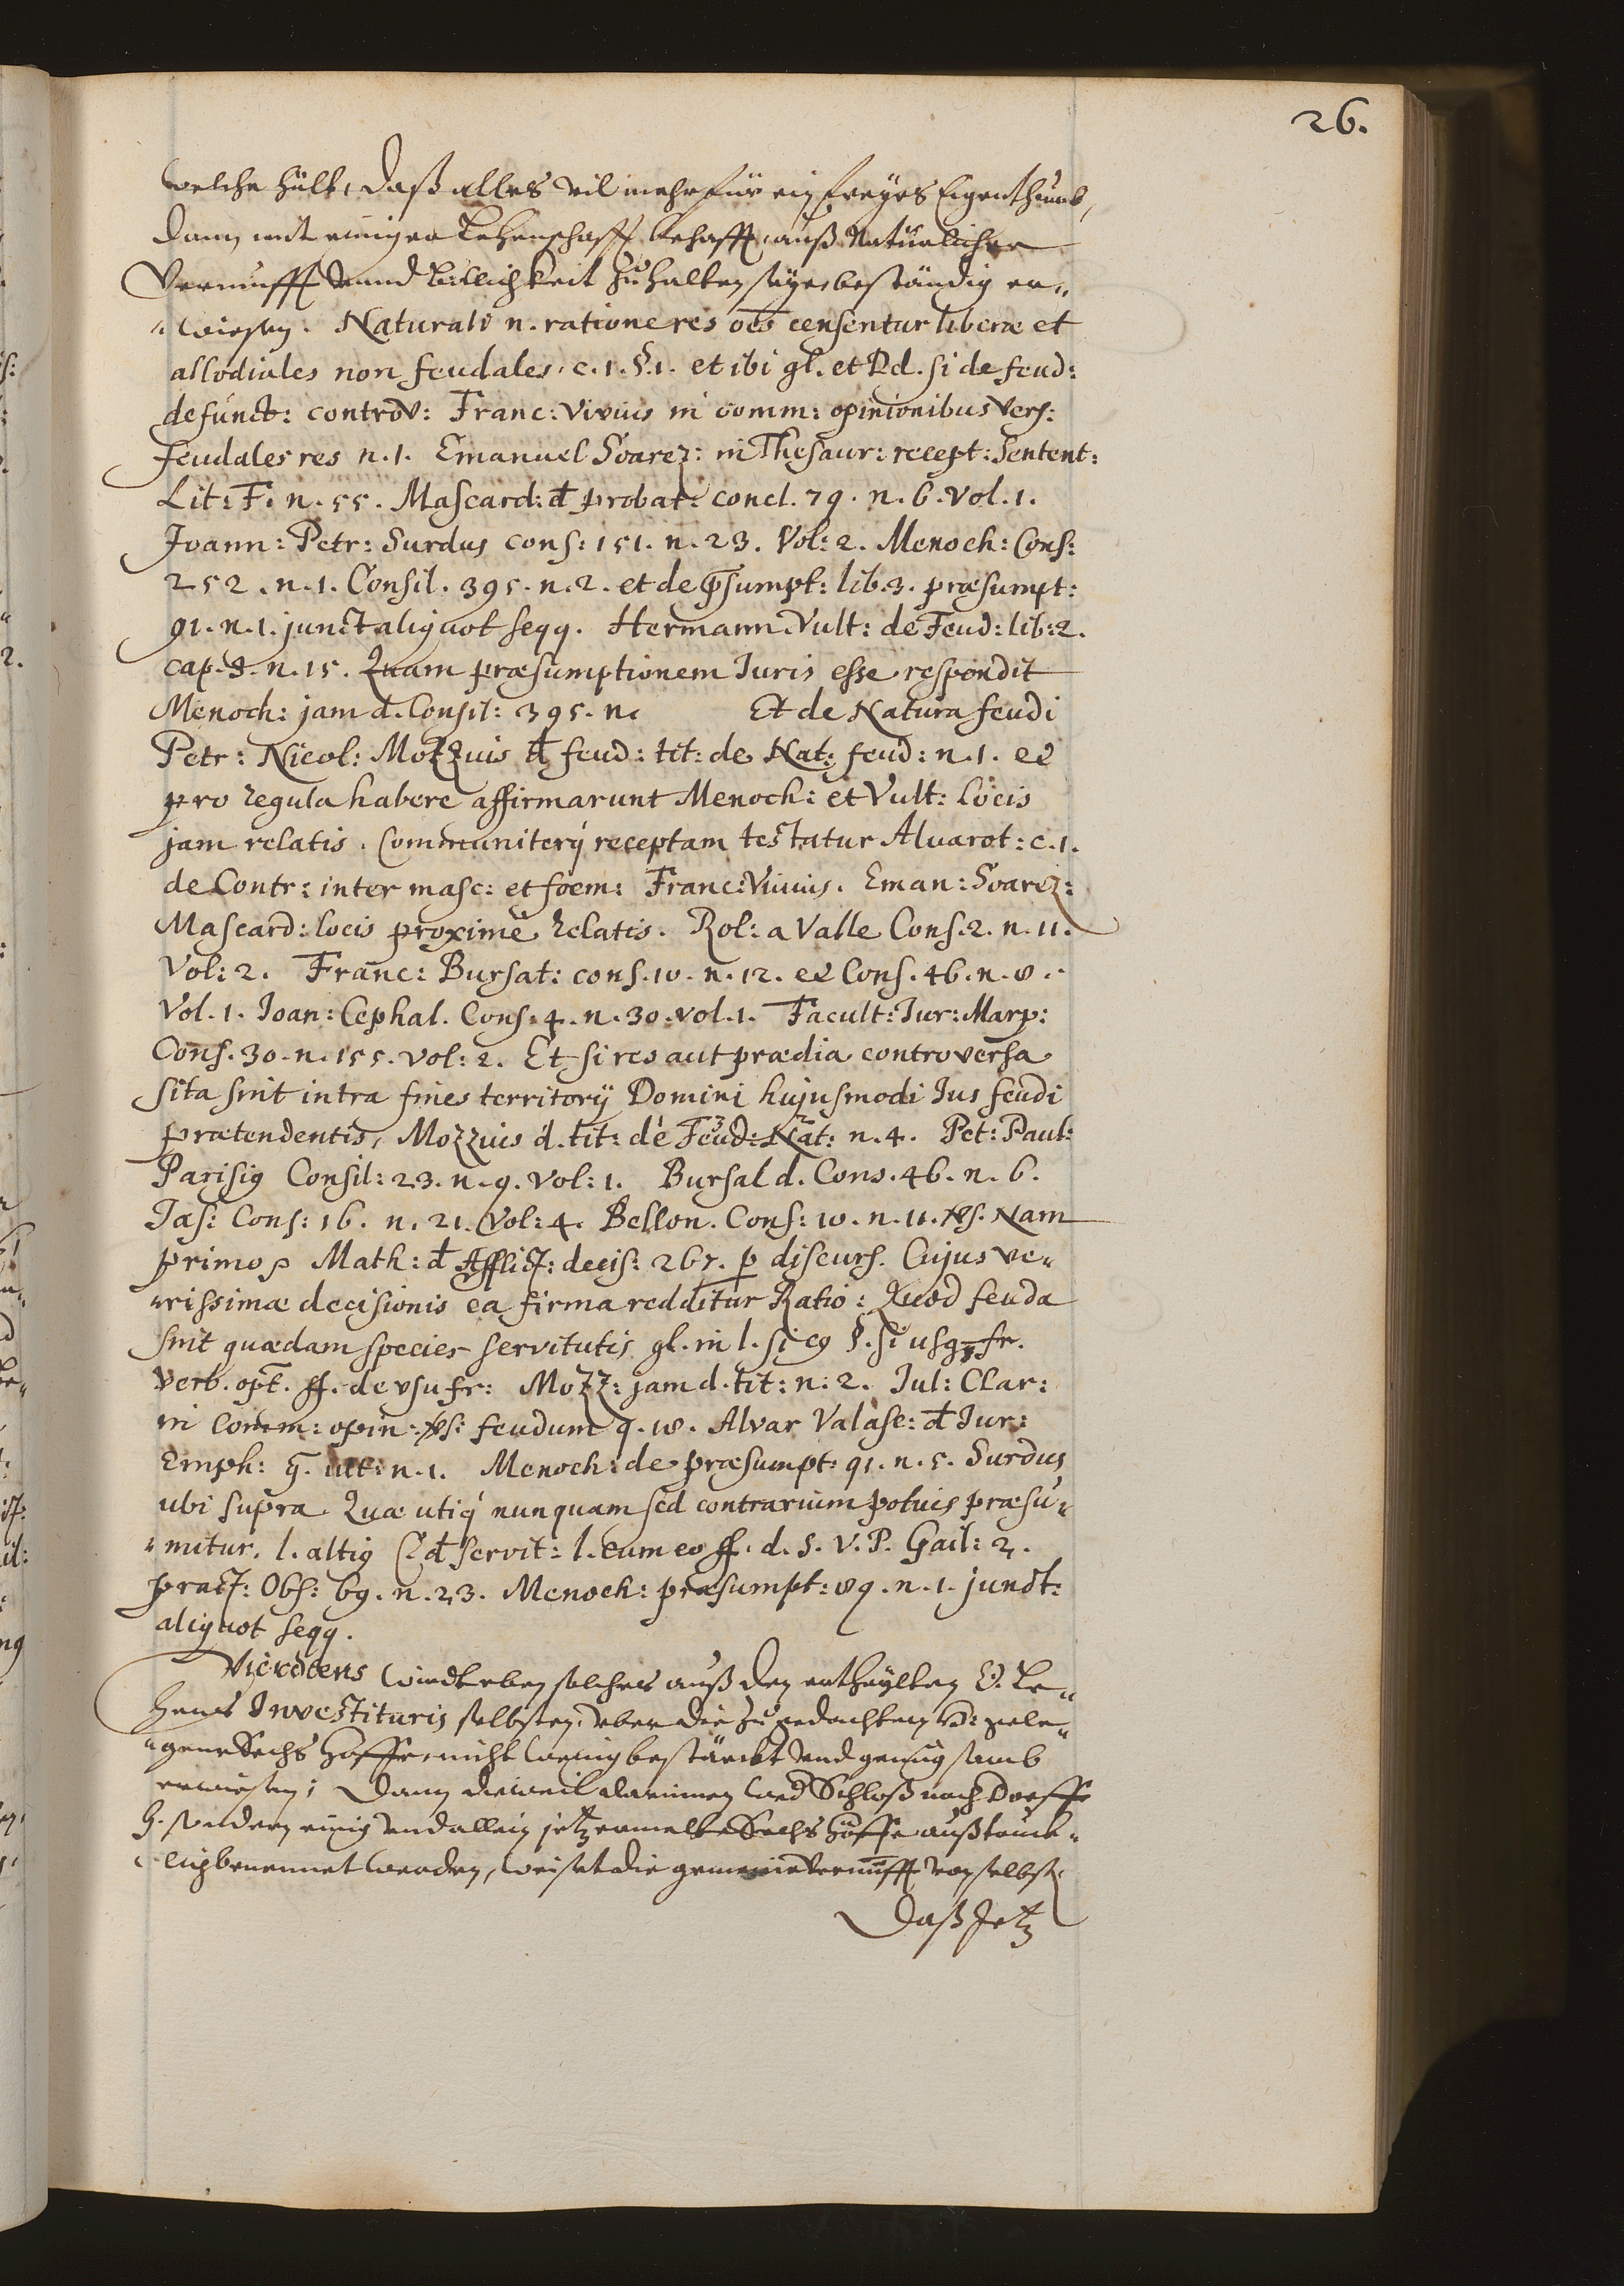 26.
welche hält, daß alles vil mehr für ein freyes Eigenthumb,
dann mit einiger Lehenschafft behafft, auß Natürlicher
Vernunfft vnnd billichkeit zu halten seye, beständig er„
„wiesen. Naturali n. ratione res oēs censentur liberæ et
allodiales non feudales, c. 1. §. 1. et ibi gl. et Dd. si de feud:
defunct: controv: Franc: Vivius in comm: opinionibus vers:
feudales res n. 1. Emanuel Soarez: in Thesaur: recept: Sentent:
Lit: F. n. 55. Mascard: đ probat: concl. 79. n. 6. Vol. 1.
Joann: Petr: Surdus cons: 151. n. 23. Vol: 2. Menoch: Cons:
252. n. 1. Consil. 395. n. 2. et de p̄sumpt: lib. 3. præsumpt:
91. n. 1. junct aliquot seqq. Hermann. Vult: de Feud: lib: 2.
cap. 8. n. 15. Quam præsumptionem Juris esse respondit
Menoch: jam d. Consil: 395. n. Et de Natura feudi
Petr: Nicol: Mozzius đ feud: tit: de Nat: feud: n. 1. et
pro regula habere affirmarunt Menoch: et Vult: Locis
jam relatis. Communiterq́ receptam testatur Alvarot: c. 1.
de Contr: inter masc: et foem: Franc: Vivius. Eman: Soarez:
Mascard: locis proximè relatis. Rol: a Valle Cons. 2. n. 11.
Vol: 2. Franc: Bursat: cons. 10. n. 12. et Cons. 46. n. 8.
Vol. 1. Joan: Cephal. Cons. 4. n. 30. vol. 1. Facult: Jur: Marp:
Cons. 30. n. 155. vol: 2. Et si res aut prædia controversa
sita sint intra fines territorÿ Domini hujusmodi Jus feudi
prætendentis, Mozzius d. tit: de Feud: Nat: n. 4. Pet: Paul:
Parisiꝯ Consil: 23. n. 9. Vol: 1. Bursal d. Cons. 46. n. 6.
Jas: Cons: 16. n. 21. Vol: 4. Bellon. Cons: 10. n. 11. vs. Nam
primo, Math: đ Afflict: decis: 267. p discurs. Cujus ve„
„rissimæ decisionis ea firma redditur Ratio: Quod feuda
sint quædam species servitutis gl. in l. si cꝯ §. si usꝯfr.
verb. opt. ff. de vsu fr: Mozz: jam d. tit: n: 2. Jul: Clar:
in Comm: opin: vs: feudum q. 10. Alvar Valasc: đ Jur:
Emph: q. ult: n. 1. Menoch: de præsumpt: 91. n. 5. Surdus
ubi supra Quæ utiq́ nunquam sed contrarium potuis præsu„
„mitur. l. altiꝯ C. đ servit: l. cum eo ff. d. S. V. P. Gail: 2.
pract: Obs: 69. n. 23. Menoch: præsumpt: 89. n. 1. junct:
aliquot seqq.
Vierdtens wirdt eben solches auß den ertheylten Le„
hens Investituris selbsten, vber die zu gedachten gele„
„gene Sechs Höffe, nicht wenig bestärckt vnd genugsamb
erwiesen; dann dieweil darinnen wed Schloß noch Dorff
sondern einig vnd allein jetz ermelte Sechs Höffe außtruck„
„lich benennet werden, weiset die gemeine Vernunfft von selbst
Daß Jetz